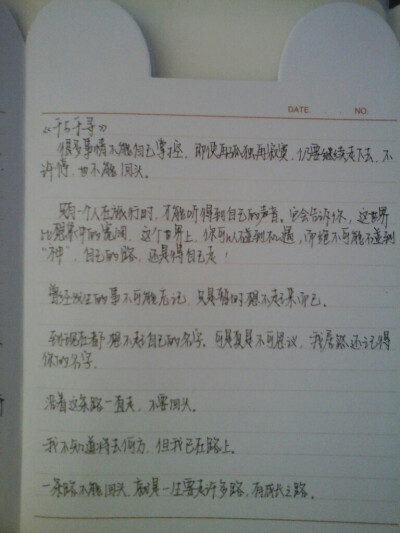 DATE. . . NO.
《千与千寻》
很多事情不能自己掌控，即使再孤独再寂寞，仍要继续走下去，不
许停，也不能回头。
只有一个人在旅行时，才能听得到自己的声音。它会告诉你，这世界
比想象中的宽阔。这个世界上，你可以碰到机遇，而绝不可能不碰到
“神”，自己的路，还是得自己走！
曾经发生的事不可能忘记，只是暂时想不起来而已。
到现在都想不起自己的名字。可是真是不可思议，我居然还记得
你的名字。
沿着这条路一直走，不要回头。
我不知道将去何方，但我已在路上。
一条路不能回头，就是一生要走许多路，有成长之路。